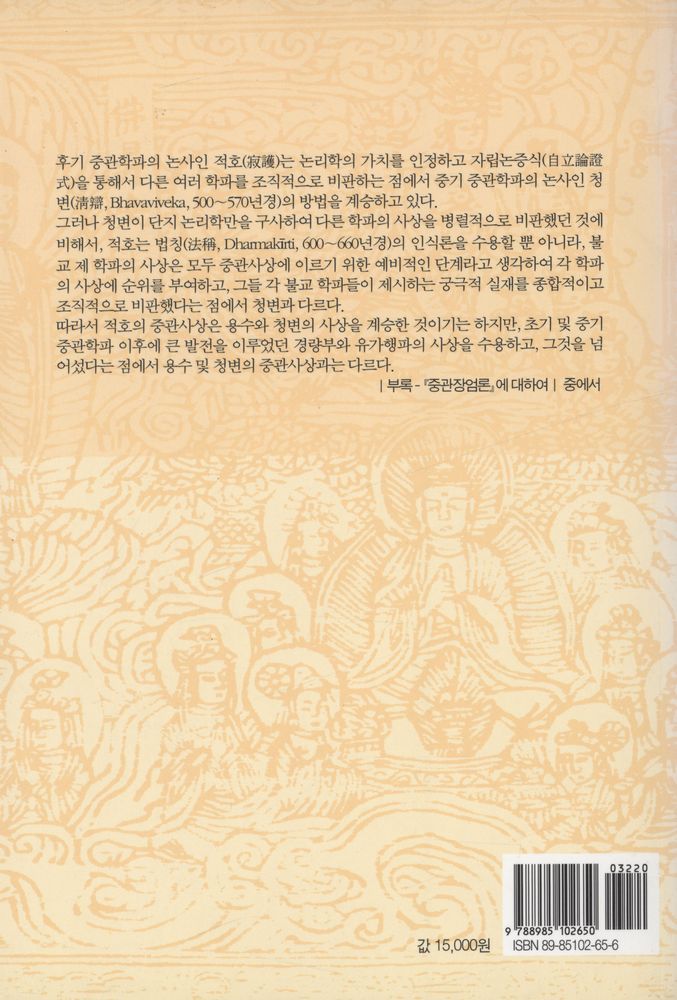 후기 중관학파의 논사인 적호(寂護)는 논리학의 가치를 인정하고 자립논증식(自立論證
式)을 통해서 다른 여러 학파를 조직적으로 비판하는 점에서 중기 중관학파의 논사인 청
변(淸辯, Bhavaviveka, 500~570년경)의 방법을 계승하고 있다.
그러나 청변이 단지 논리학만을 구사하여 다른 학파의 사상을 병렬적으로 비판했던 것에
비해서, 적호는 법칭(法稱, Dharmakīrti, 600~660년경)의 인식론을 수용할 뿐 아니라, 불
교 제 학파의 사상은 모두 중관사상에 이르기 위한 예비적인 단계라고 생각하여 각 학파
의 사상에 순위를 부여하고, 그들 각 불교 학파들이 제시하는 궁극적 실재를 종합적이고
조직적으로 비판했다는 점에서 청변과 다르다.
따라서 적호의 중관사상은 용수와 청변의 사상을 계승한 것이기는 하지만, 초기 및 중기
중관학파 이후에 큰 발전을 이루었던 경량부와 유가행파의 사상을 수용하고, 그것을 넘
어섰다는 점에서 용수 및 청변의 중관사상과는 다르다.
| 부록 - 『중관장엄론』에 대하여 | 중에서
03220
9 788985 102650
값 15,000원
ISBN 89-85102-65-6